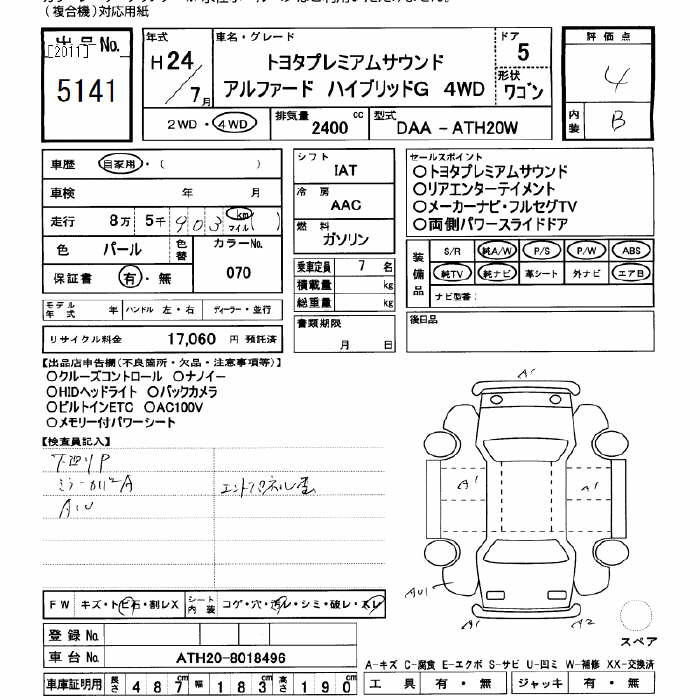 (複合機)対応用紙
出品No.
[2011]
5141
年式
H24/7月
車名・グレード
トヨタプレミアムサウンド
アルファード ハイブリッドG 4WD
ドア
5
形状
ワゴン
評価点
4
内装
B
2WD・4WD
排気量 2400 cc
型式 DAA-ATH20W
車歴 自家用・( )
車検 年 月
走行 8万 5千 903 km マイル ( )
色 パール
色替
カラーNo.
070
保証書 有・無
モデル年式 年
ハンドル 左・右
ディーラー・並行
リサイクル料金 17,060 円 預託済
シフト
IAT
冷房
AAC
燃料
ガソリン
乗車定員 7 名
積載量 kg
総重量 kg
書類期限
月 日
セールスポイント
○トヨタプレミアムサウンド
○リアエンターテイメント
○メーカーナビ・フルセグTV
○両側パワースライドドア
装備品
S/R 純A/W P/S P/W ABS
純TV 純ナビ 革シート 外ナビ エアB
ナビ型番:
後日品
【出品店申告欄(不良箇所・欠品・注意事項等)】
○クルーズコントロール ○ナノイー
○HIDヘッドライト ○バックカメラ
○ビルトインETC ○AC100V
○メモリー付パワーシート
【検査員記入】
ミラーカバーA
A1U
A1
A1
A1
AU1
A1
A2
スペア
FW キズ・トビ石・割レX
シート内装 コゲ・穴・汚レ・シミ・破レ・スレ
登録No.
車台No. ATH20-8018496
車庫証明用 長さ 487cm 幅 183cm 高さ 190cm
A-キズ C-腐食 E-エクボ S-サビ U-凹ミ W-補修 XX-交換済
工具 有・無 ジャッキ 有・無